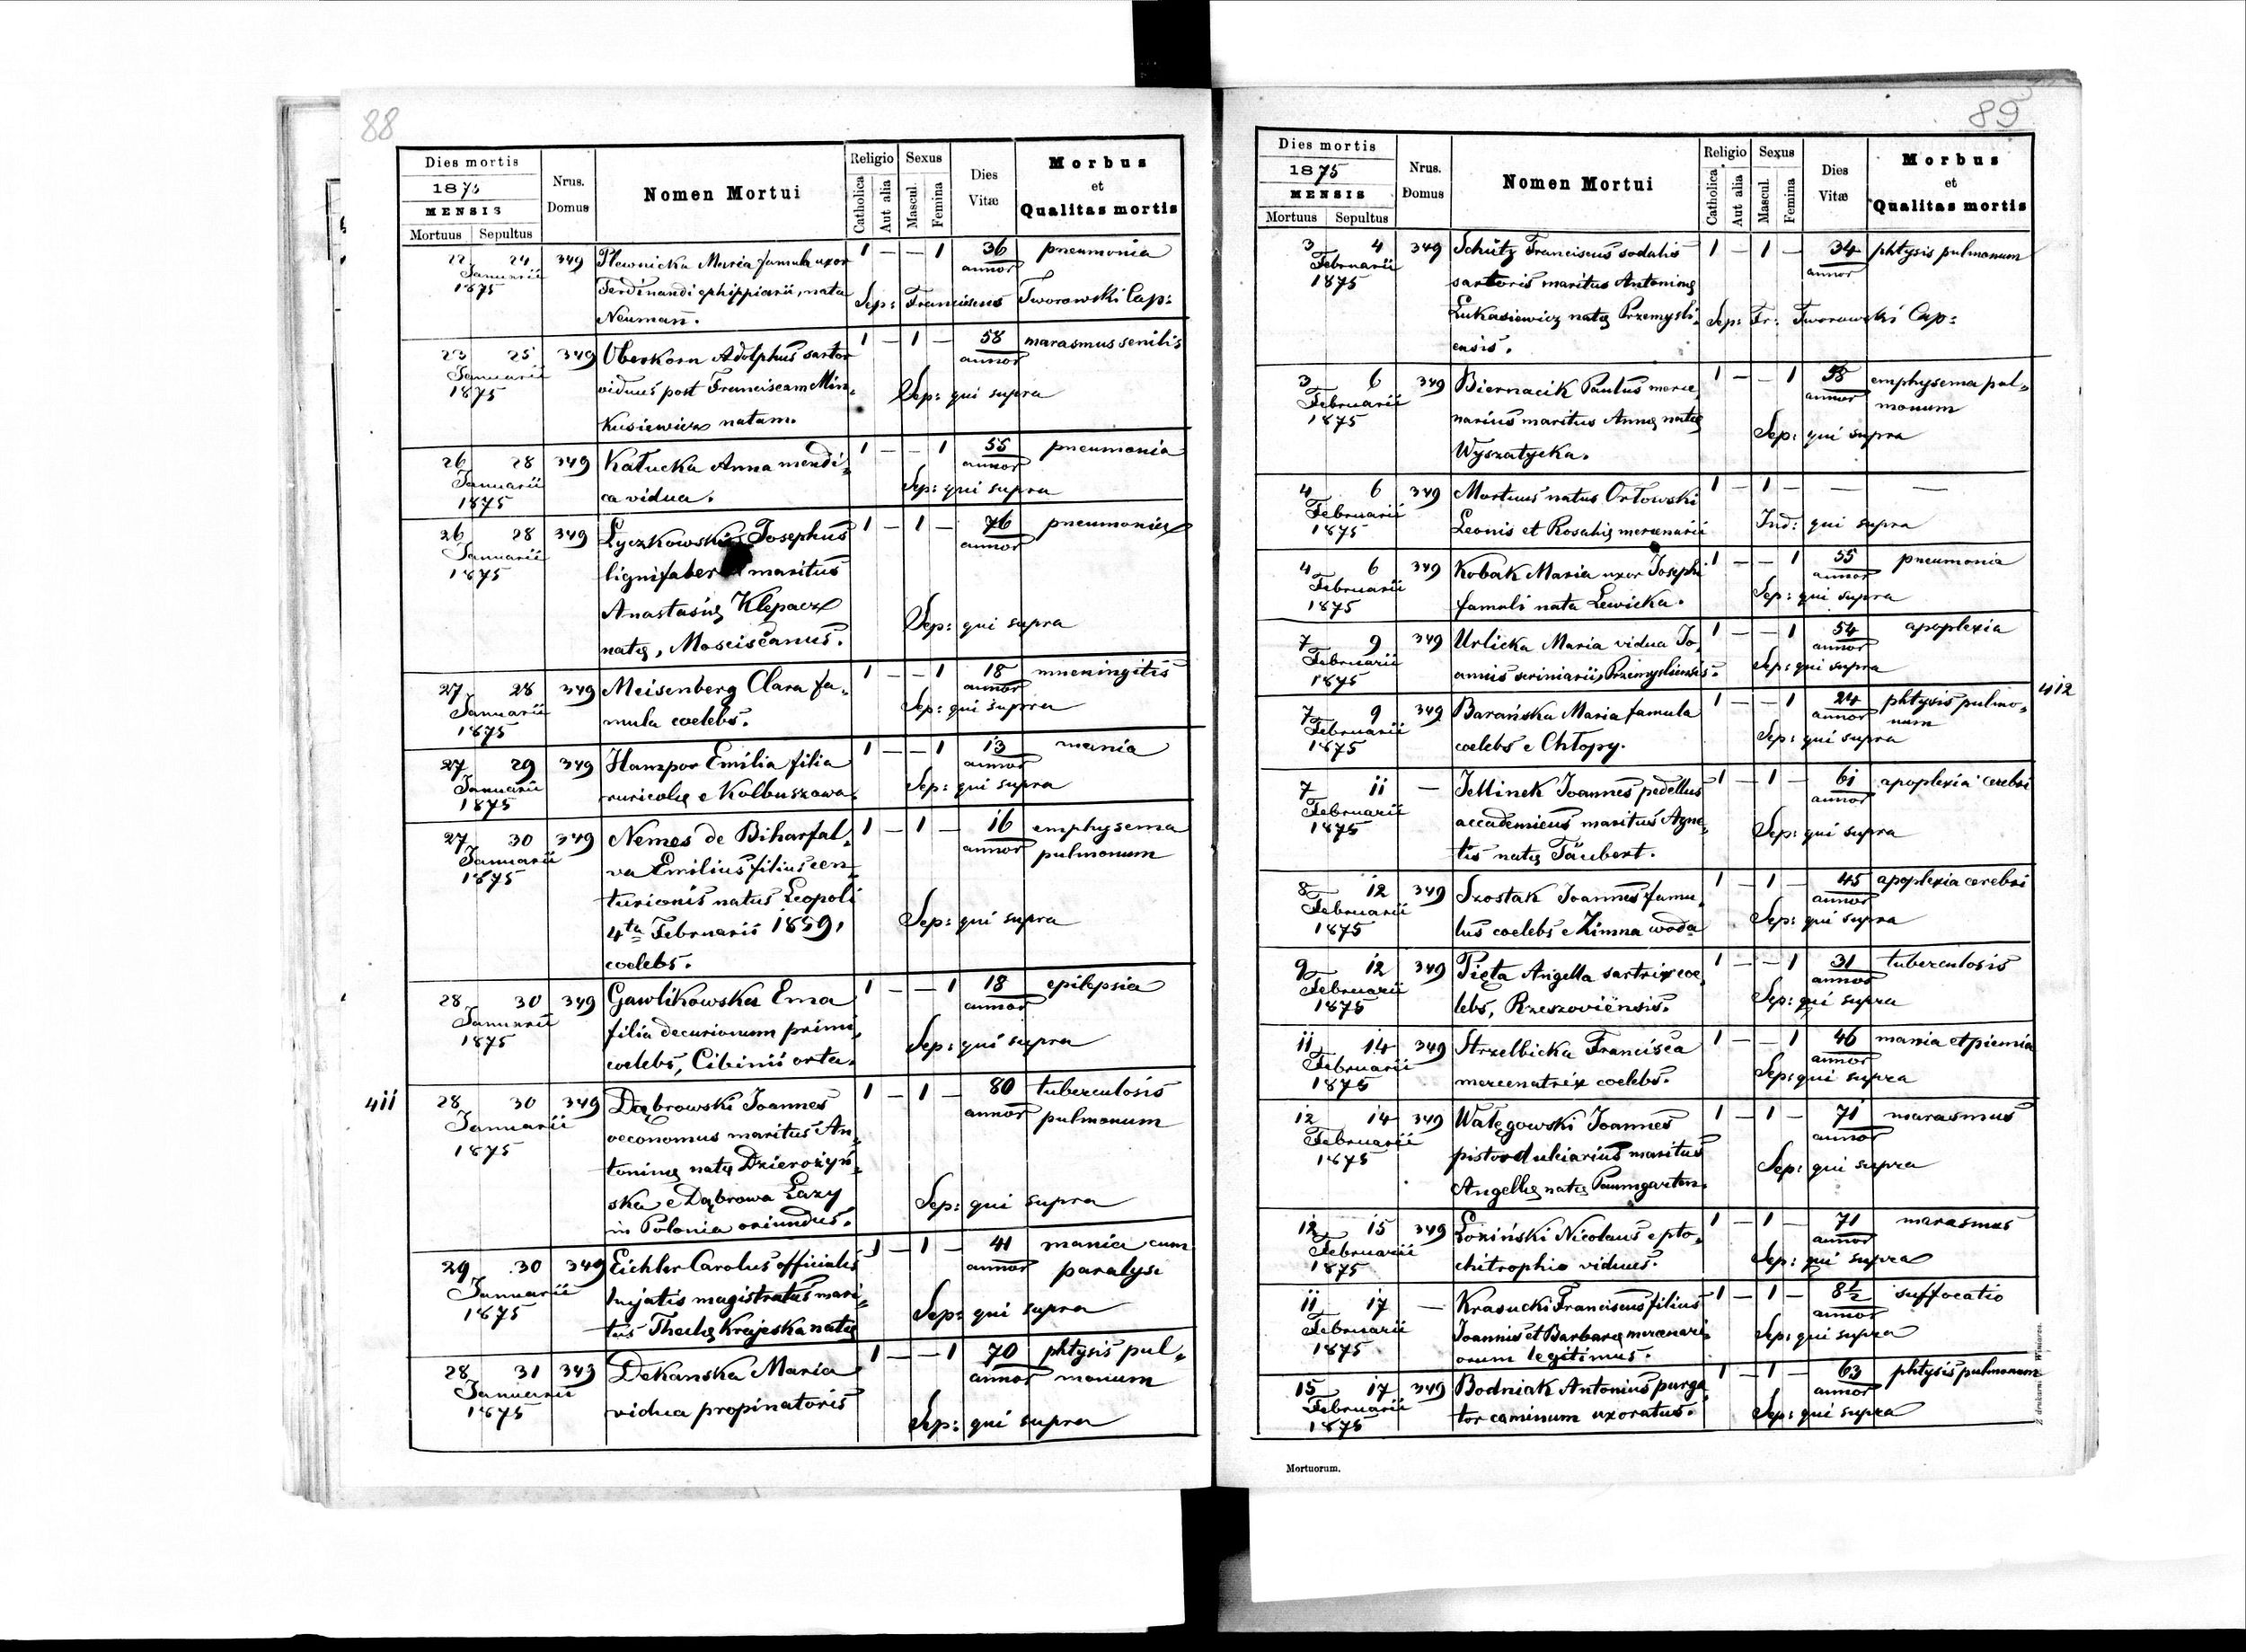 88
Dies mortis
1875
MENSIS
Mortuus Sepultus
Nrus. Domus
Nomen Mortui
Religio
Catholica
Aut alia
Sexus
Mascul.
Femina
Dies Vitæ
Morbus
et
Qualitas mortis
22 24 349 Plewnicka Maria famula uxor 1 — — 1 36 pneumonia
Januarii Ferdinandi ephippiarii, nata annor
1875 Neumann. Sep: Franciscus Tworowski Cap:
23 25 349 Oberkorn Adolphus sartor 1 — 1 — 58 marasmus senilis
Januarii viduus post Franciscam Min- annor
1875 kusiewicz natam. Sep: qui supra
26 28 349 Kałucka Anna mendi- 1 — — 1 55 pneumonia
Januarii ca vidua. annor
1875 Sep: qui supra
26 28 349 Łyczkowski Josephus 1 — 1 — 76 pneumonia
Januarii lignifaber maritus annor
1875 Anastasię Klepacz
natę, Mosciscanus. Sep: qui supra
27 28 349 Meisenberg Clara fa- 1 — — 1 18 mneningitis
Januarii mula coelebs. annor
1875 Sep: qui supra
27 29 349 Hampor Emilia filia 1 — — 1 13 mania
Januarii ruricolę e Kolbuszowa annor
1875 Sep: qui supra
27 30 349 Nemes de Biharfal- 1 — 1 — 16 emphysema
Januarii va Emilius filius cen- annor pulmonum
1875 turionis natus Leopoli
4ta Februarii 1859, Sep: qui supra
coelebs.
28 30 349 Gawlikowska Ema 1 — — 1 18 epilepsia
Januarii filia decurionum primi, annor
1875 coelebs, Cibinii orta. Sep: qui supra
411 28 30 349 Dąbrowski Joannes 1 — 1 — 80 tuberculosis
Januarii oeconomus maritus An- annor pulmonum
1875 toninę natę Dzierożyń-
ska e Dąbrowa Łazy Sep: qui supra
in Polonia oriundus.
29 30 349 Eichler Carolus officialis 1 — 1 — 41 mania cum
Januarii hujatis magistratus mari- annor paralysi
1875 tus Theclę Krajeska natę Sep: qui supra
28 31 343 Dekanska Maria 1 — — 1 70 phtysis pul-
Januarii vidua propinatoris annor monum
1875 Sep: qui supra
89
Dies mortis
1875
MENSIS
Mortuus Sepultus
Nrus. Domus
Nomen Mortui
Religio
Catholica
Aut alia
Sexus
Mascul.
Femina
Dies Vitæ
Morbus
et
Qualitas mortis
3 4 349 Schütz Franciscus sodalis 1 — 1 — 34 phtysis pulmonum
Februarii sartoris maritus Antoninę annor
1875 Łukasiewicz natę Przemysli-
ensis. Sep: Fr: Tworowski Cap:
3 6 349 Biernacik Paulus merce- 1 — — 1 58 emphysema pul-
Februarii narius maritus Annę natę annor monum
1875 Wyszatycka. Sep: qui supra
4 6 349 Mortuus natus Orłowski 1 — 1 — — —
Februarii Leonis et Rosalię mercenarii
1875 Ind: qui supra
4 6 349 Kobak Maria uxor Josephi 1 — — 1 55 pneumonia
Februarii famuli nata Lewicka. annor
1875 Sep: qui supra
7 9 349 Urlicka Maria vidua Jo- 1 — — 1 54 apoplexia
Februarii annis scriniarii, Przemysliensis. annor
1875 Sep: qui supra
7 9 349 Barańska Maria famula 1 — — 1 24 phtysis pulmo- 412
Februarii coelebs e Chłopy. annor num
1875 Sep: qui supra
7 11 — Jellinek Joannes pedellus 1 — 1 — 61 apoplexia cerebri
Februarii accademicus maritus Agne- annor
1875 tis natę Täubert. Sep: qui supra
8 12 349 Szostak Joannes famu- 1 — 1 — 45 apoplexia cerebri
Februarii lus coelebs e Zimna woda annor
1875 Sep: qui supra
9 12 349 Pięta Angella sartrix coe- 1 — — 1 31 tuberculosis
Februarii lebs, Rzeszoviensis. annor
1875 Sep: qui supra
11 14 349 Strzelbicka Francisca 1 — — 1 46 mania et piemia
Februarii mercenatrix coelebs. annor
1875 Sep: qui supra
12 14 349 Wałęgowski Joannes 1 — 1 — 71 marasmus
Februarii pistor dulciarius maritus annor
1875 Angellę natę Paumgarten. Sep: qui supra
12 15 349 Łoziński Nicolaus e pto- 1 — 1 — 71 marasmus
Februarii chitrophio viduus. annor
1875 Sep: qui supra
11 17 — Krasucki Franciscus filius 1 — 1 — 8½ suffocatio
Februarii Joannis et Barbarę mercenari- annor
1875 orum legitimus. Sep: qui supra
15 17 349 Bodniak Antonius purga- 1 — 1 — 63 phtysis pulmonum
Februarii tor caminum uxoratus. annor
1875 Sep: qui supra
Mortuorum.
Z drukarni Winiarza.